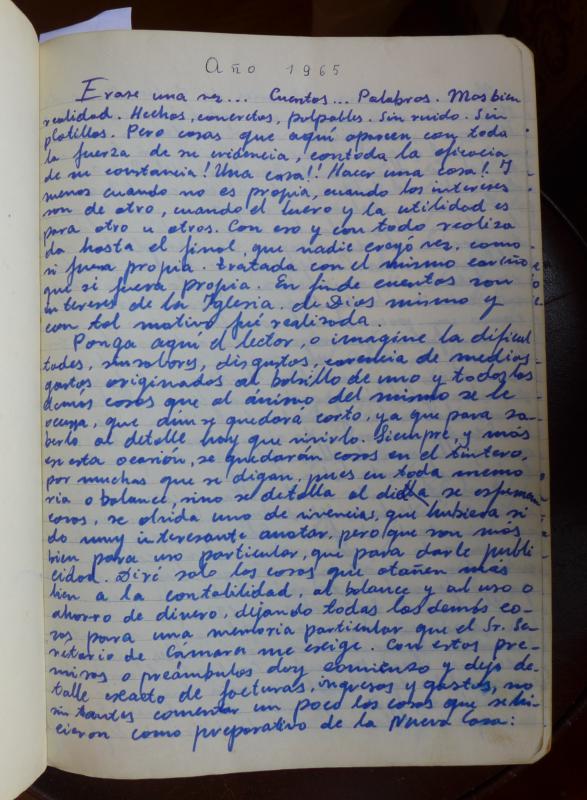 Año 1965
Erase una vez... Cuentos... Palabras. Mas bien
realidad. Hechos, concretos, palpables. Sin ruido. Sin
platillos. Pero cosas que aqui aparecen con toda
la fuerza de su evidencia, con toda la eficacia
de su constancia! Una casa!! Hacer una casa! Y
menos cuando no es propia, cuando los intereses
son de otro, cuando el lucro y la utilidad es
para otro u otros. Con eso y con todo realiza
da hasta el final, que nadie creyó vez, como
si fuera propia. tratada con el mismo cariño
que si fuera propia. En fin de cuentas son
intereses de la Iglesia, de Dios mismo y
con tal motivo fué realizada.
Ponga aquí el lector, o imagine la dificul
tades, sinsabores, disgustos, carencia de medios,
gastos originados al bolsillo de uno y todos las
demás cosas que al ánimo del mismo se le
ocurra, que aún se quedará corto, ya que para sa-
berlo al detalle hay que vivirlo. Siempre, y más
en esta ocasión, se quedarán cosas en el tintero,
por muchas que se digan, pues en toda memo
ria o balance, sino se detalla al dia se esfuman
cosas, se olvida uno de vivencias, que hubiera si
do muy interesante anotar, pero que son más
bien para uso particular, que para darle publi
cidad. Diré solo las cosas que atañen más
bien a la contabilidad, al balance y al uso o
ahorro de dinero, dejando todas las demás co-
sas para una memoria particular que el Sr. Se-
cretario de Cámara me exige. Con estos pre-
misas o preámbulos doy comienzo y dejo de-
talle exacto de facturas, ingresos y gastos, no
sin tandes comentar un poco las cosas que se hi-
cieron como preparativo de la Nueva Casa: